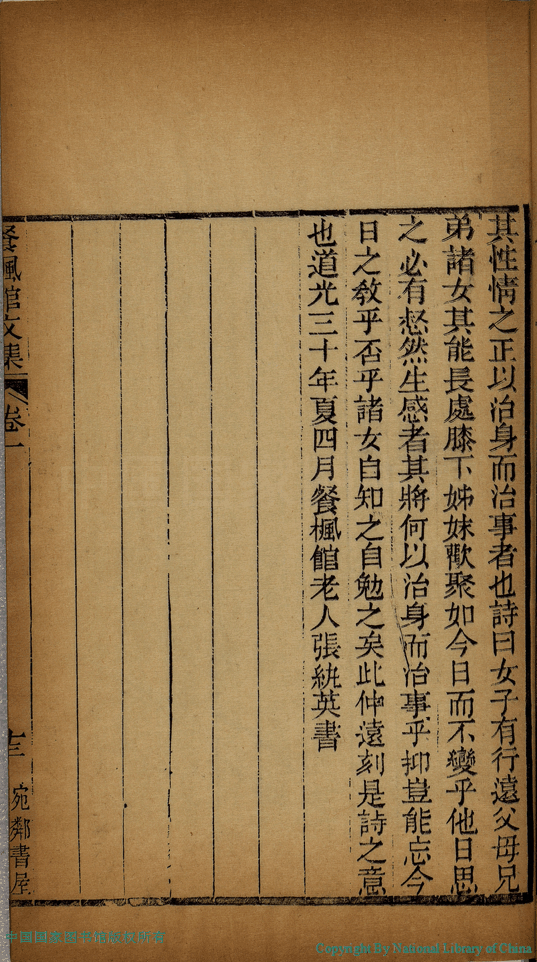 其性情之正以治身而治事者也詩曰女子有行遠父母兄
弟諸女其能長處膝下姊妹歡聚如今日而不變乎他日思
之必有惄然生感者其將何以治身而治事乎抑豈能忘今
日之敎乎否乎諸女自知之自勉之矣此仲遠刻是詩之意
也道光三十年夏四月餐楓館老人張䌹英書
餐楓館文集
卷一
十三
宛鄰書屋
中国国家图书馆版权所有
Copyright By National Library of China